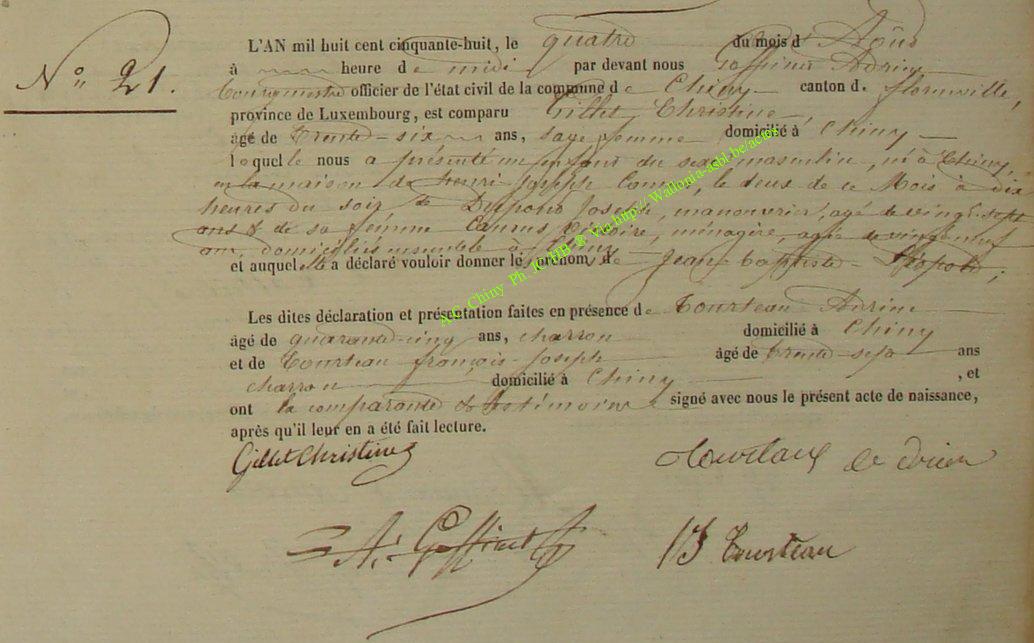 N° 21.
L'AN mil huit cent cinquante-huit, le quatre du mois d'Août
à heure de midi par devant nous Goffinet Adrien
Bourgmestre officier de l'état civil de la commune de Chiny canton d. florenville,
province de Luxembourg, est comparu Gillet Christine,
âgé de trente-six ans, sage femme domicilié à Chiny
lequelle nous a présenté un enfant du sexe masculin, né à Chiny
en la maison de henri Joseph, le deux de ce Mois à dix
heures du soir de Joseph, manouvrier, agé de vingt-sept
ans & de sa femme, ménagère, agée de vingt neuf
ans, domiciliés ensemble à Chiny
et auquel elle a déclaré vouloir donner le prénom de Jean-baptiste-Léopold;
Les dites déclaration et présentation faites en présence de Tourteau Adrien
âgé de quarante-cinq ans, charron domicilié à Chiny
et de Tourteau françois-Joseph âgé de trente-sept ans
charron domicilié à Chiny, et
ont la comparante & les témoins signé avec nous le présent acte de naissance,
après qu'il leur en a été fait lecture.
Gillet Christine
A. Goffinet
Tourteau
A.E. Chiny Ph. ® Via http://Wallonia-asbl.be/actes